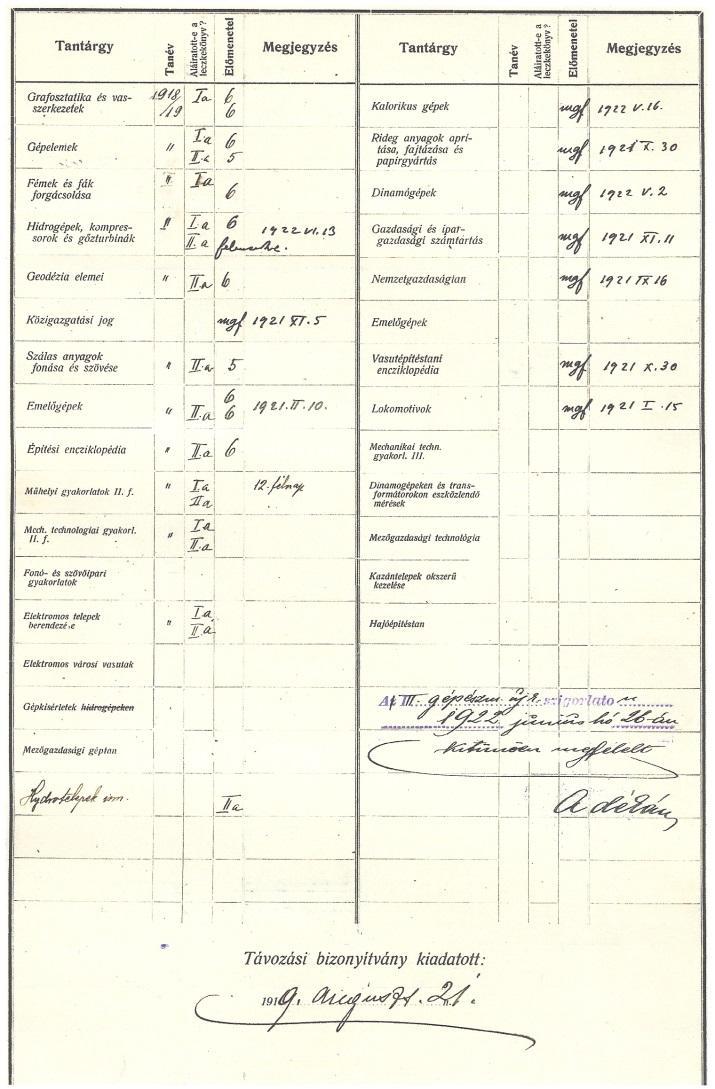 Tantárgy Tanév Aláiratott-e a leczkekönyv? Előmenetel Megjegyzés
Grafosztatika és vas-
szerkezetek 1918/19 Ia 6 6
Gépelemek " Ia 6
IIa 5
Fémek és fák
forgácsolása " Ia 6
Hidrogépek, kompres-
sorok és gőzturbinák " Ia 6 1922 VI. 13
IIa
Geodézia elemei " IIa 6
Közigazgatási jog mgf 1921 XI. 5
Szálas anyagok
fonása és szövése " IIa 5
Emelőgépek " IIa 6 6 1921. II. 10.
Építési encziklopédia " IIa 6
Műhelyi gyakorlatok II. f. " Ia 12. félnap
IIa
Mech. technologiai gyakorl.
II. f. " Ia
IIa
Fonó- és szövőipari
gyakorlatok
Elektromos telepek
berendezése " Ia
IIa
Elektromos városi vasutak
Gépkisérletek hidrogépeken
Mezőgazdasági géptan
Hydrotelepek IIa
Tantárgy Tanév Aláiratott-e a leczkekönyv? Előmenetel Megjegyzés
Kalorikus gépek mgf 1922 V. 16.
Rideg anyagok aprí-
tása, fajtázása és
papirgyártás mgf 1921 X. 30
Dinamógépek mgf 1922 V. 2
Gazdasági és ipar-
gazdasági számtartás mgf 1921 XI. 11
Nemzetgazdaságtan mgf 1921 IX 16
Emelőgépek
Vasutépitéstani
encziklopédia mgf 1921 X. 30
Lokomotivok mgf 1921 I. 15
Mechanikai techn.
gyakorl. III.
Dinamogépeken és trans-
formátorokon eszközlendő
mérések
Mezőgazdasági technológia
Kazántelepek okszerű
kezelése
Hajóépitéstan
A III. gépészm. új r. szigorlaton
1922 junius hó 26-án
kitünően megfelelt
A dékán
Távozási bizonyítvány kiadatott:
1919. auguszt. 21.